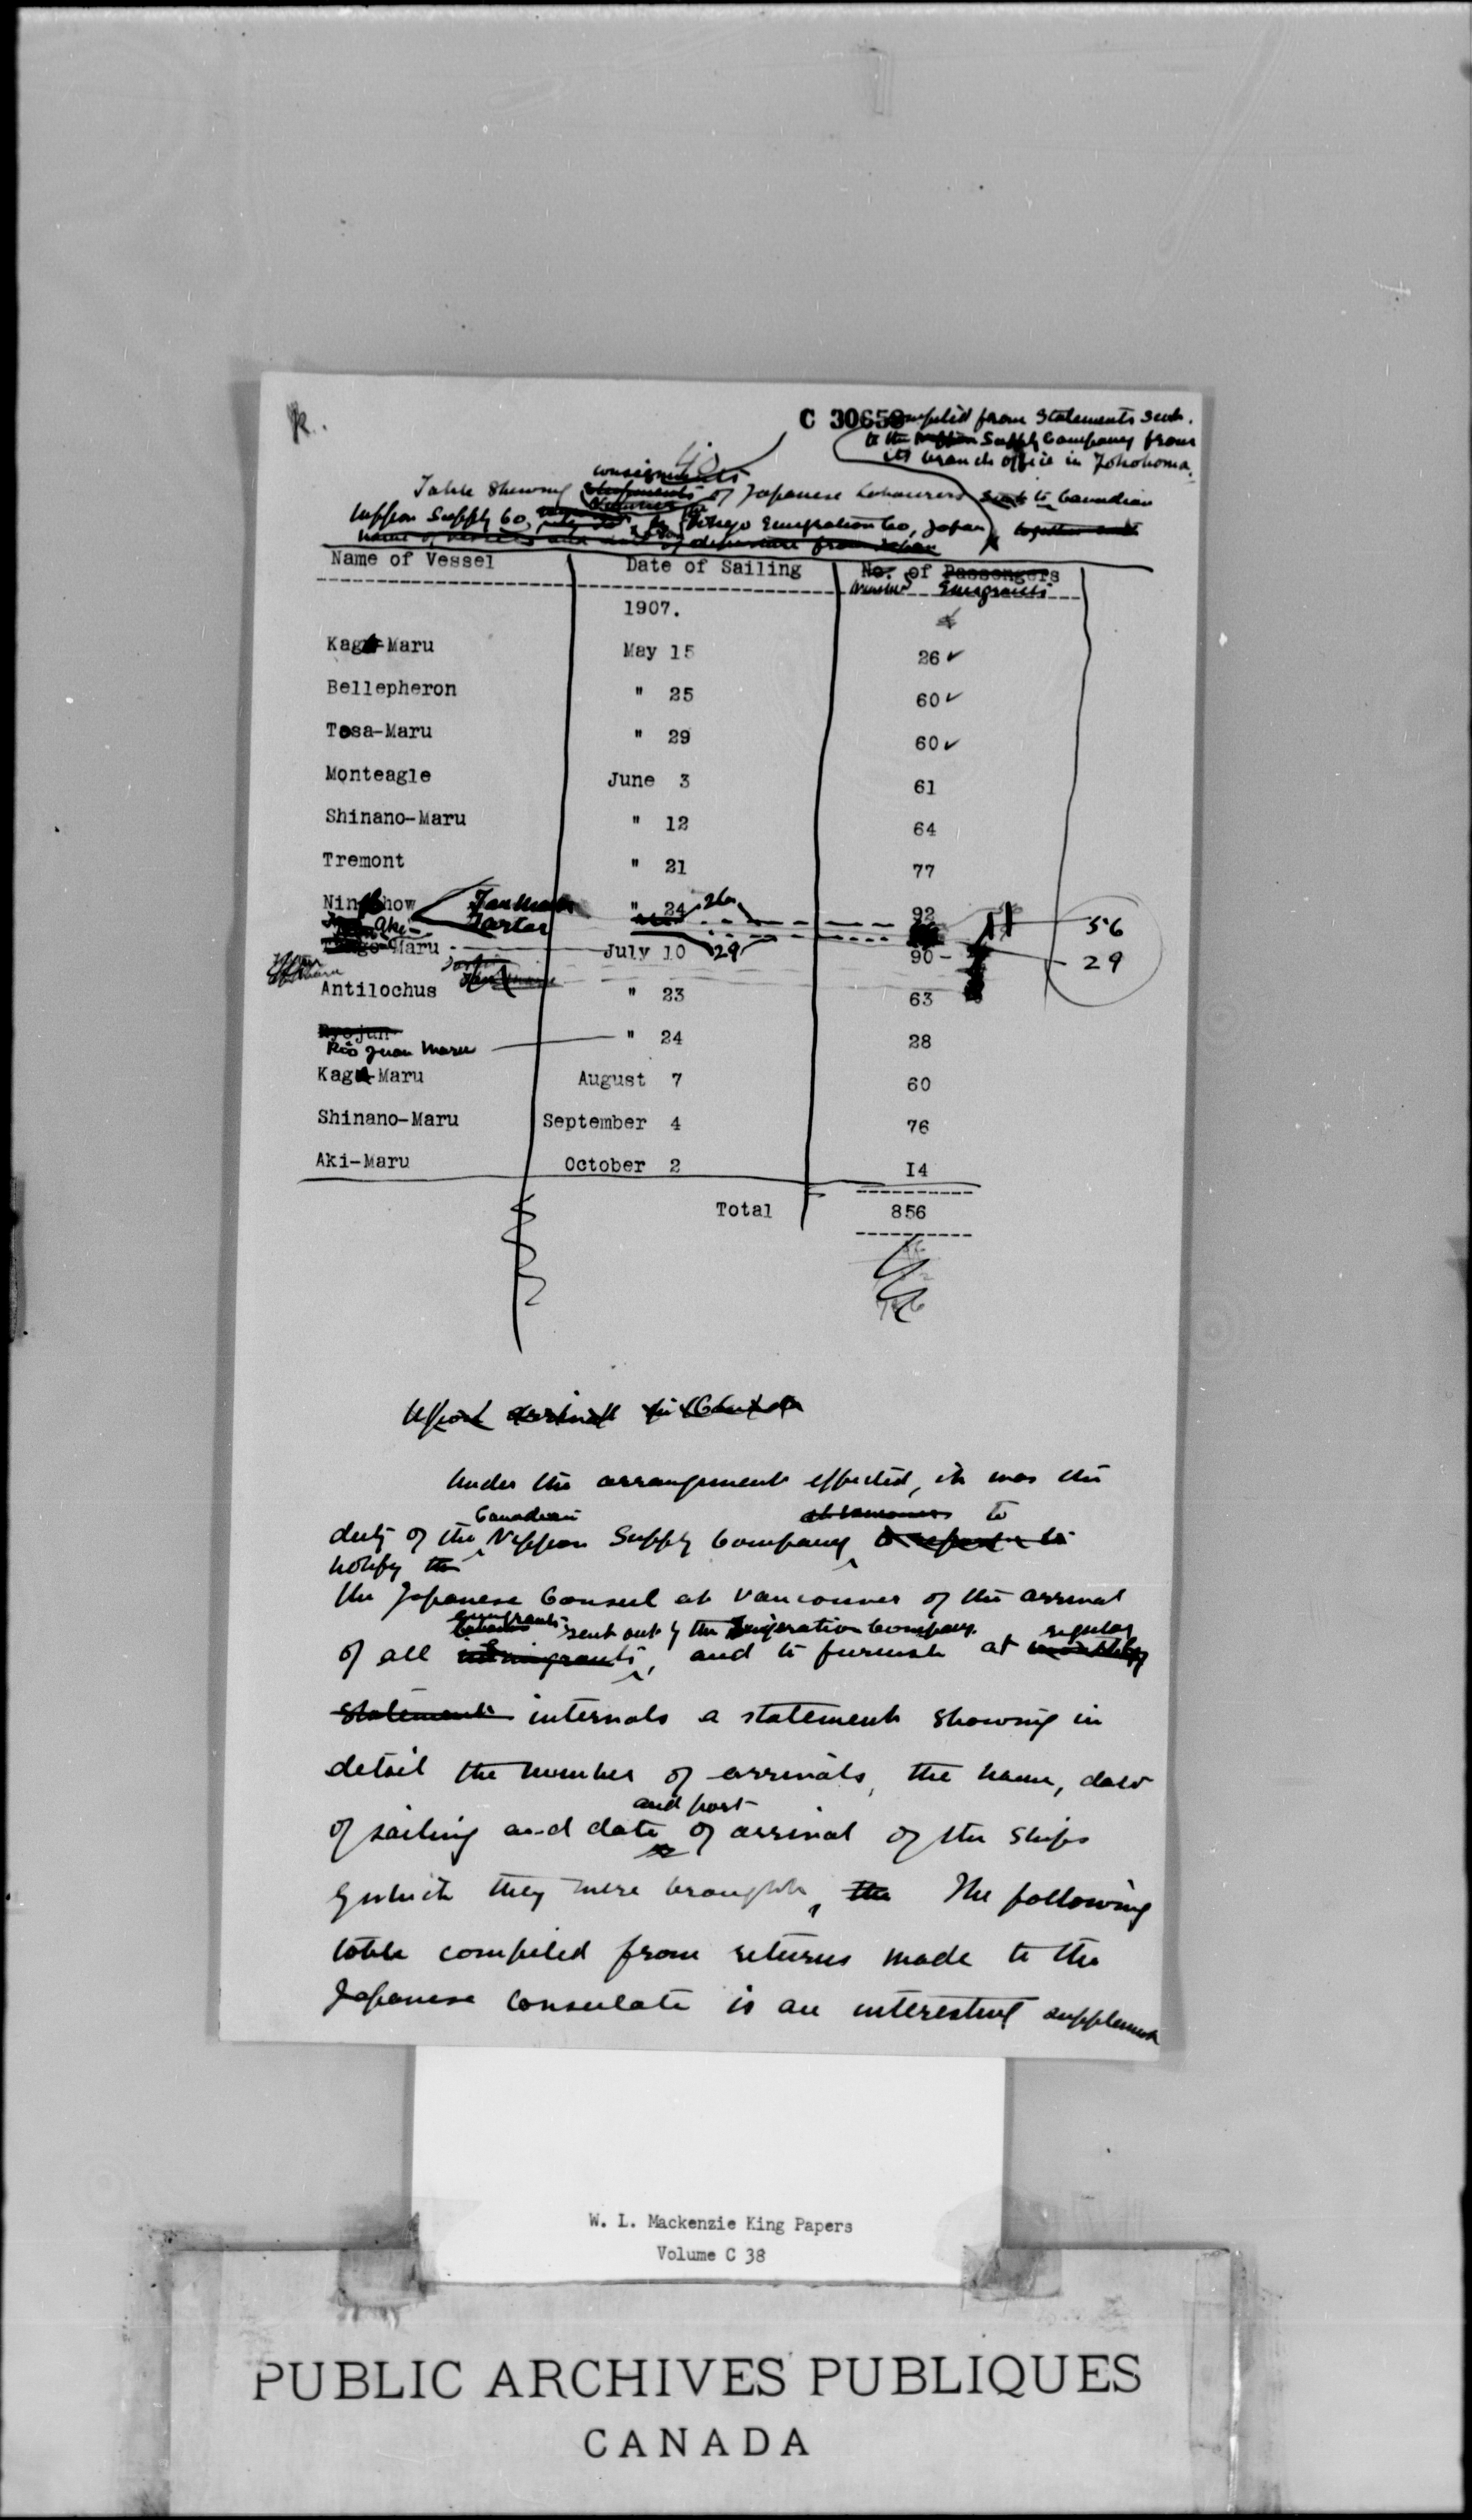 k.
C 30658 compiled from statements sent
to the Supply Company from
its branch office in Yokohoma.
consignments
Table showing shipments of Japanese Labourers sent to Canadian
Nippon Supply Co, by the Tokyo Emigration Co, Japan, together with
name of vessels and date of departure from Japan
Name of Vessel Date of Sailing No. of Passengers
Number Emigrants
1907.
Kaga-Maru May 15 26 ✓
Bellepheron " 25 60 ✓
Tosa-Maru " 29 60 ✓
Monteagle June 3 61
Shinano-Maru " 12 64
Tremont " 21 77
Ningchow Tan Maru " 24 26 92 56
Aki- Tartar 29
Maru July 10 29 90
Antilochus " 23 63
Ryojun " 24 28
Rio Juan Maru
Kaga-Maru August 7 60
Shinano-Maru September 4 76
Aki-Maru October 2 14
Total 856
Upon arrival in Canada
Under the arrangement effected, it was the
Canadian at Vancouver to
duty of the Nippon Supply Company to report to
notify the
the Japanese Consul at Vancouver of the arrival
emigrants sent out by the Emigration Company regular
of all immigrants, and to furnish at monthly
statements intervals a statement showing in
detail the number of arrivals, the name, date
and port
of sailing and date of arrival of the ships
by which they were brought, the The following
table compiled from returns made to the
Japanese Consulate is an interesting supplement
W. L. Mackenzie King Papers
Volume C 38
PUBLIC ARCHIVES PUBLIQUES
CANADA